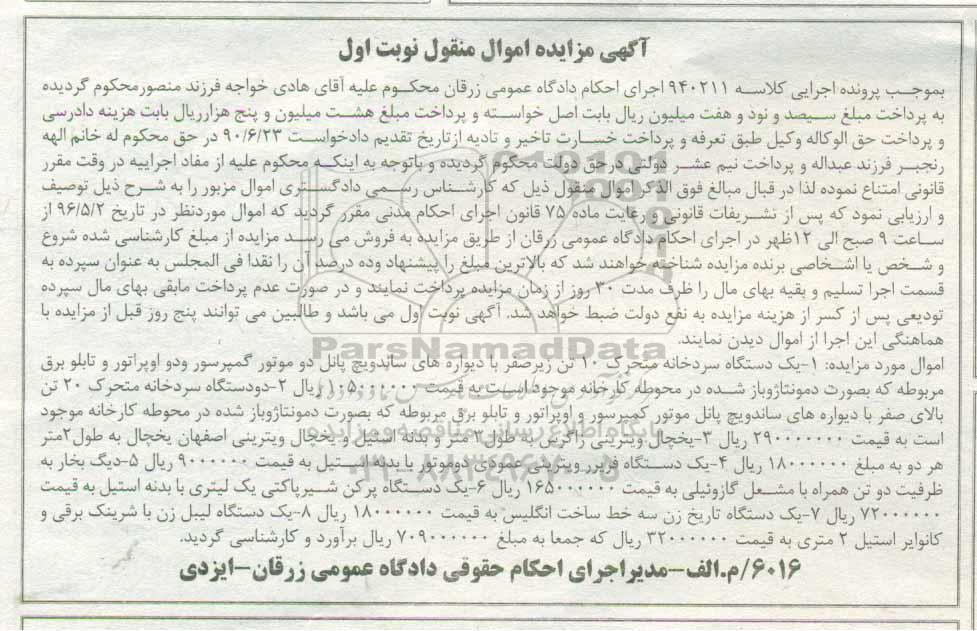 آگهی مزایده اموال منقول نوبت اول
بموجب پرونده اجرایی کلاسه ۹۴۰۲۱۱ اجرای احکام دادگاه عمومی زرقان محکوم علیه آقای هادی خواجه فرزند منصورمحکوم گردیده
به پرداخت مبلغ سیصد و نود و هفت میلیون ریال بابت اصل خواسته و پرداخت مبلغ هشت میلیون و پنج هزارریال بابت هزینه دادرسی
و پرداخت حق الوکاله وکیل طبق تعرفه و پرداخت خسارت تاخیر و تادیه ازتاریخ تقدیم دادخواست ۹۰/۶/۲۳ در حق محکوم له خانم الهه
رنجبر فرزند عبداله و پرداخت نیم عشر دولتی درحق دولت محکوم گردیده و باتوجه به اینکه محکوم علیه از مفاد اجراییه در وقت مقرر
قانونی امتناع نموده لذا در قبال مبالغ فوق الذکر اموال منقول ذیل که کارشناس رسمی دادگستری اموال مزبور را به شرح ذیل توصیف
و ارزیابی نمود که پس از تشریفات قانونی و رعایت ماده ۷۵ قانون اجرای احکام مدنی مقرر گردید که اموال موردنظر در تاریخ ۹۶/۵/۲ از
ساعت ۹ صبح الی ۱۲ظهر در اجرای احکام دادگاه عمومی زرقان از طریق مزایده به فروش می رسد مزایده از مبلغ کارشناسی شده شروع
و شخص یا اشخاصی برنده مزایده شناخته خواهند شد که بالاترین مبلغ را پیشنهاد وده درصد آن را نقدا فی المجلس به عنوان سپرده به
قسمت اجرا تسلیم و بقیه بهای مال را ظرف مدت ۳۰ روز از زمان مزایده پرداخت نمایند و در صورت عدم پرداخت مابقی بهای مال سپرده
تودیعی پس از کسر از هزینه مزایده به نفع دولت ضبط خواهد شد. آگهی نوبت اول می باشد و طالبین می توانند پنج روز قبل از مزایده با
هماهنگی این اجرا از اموال دیدن نمایند.
اموال مورد مزایده: ۱-یک دستگاه سردخانه متحرک ۱۰ تن زیرصفر با دیواره های ساندویچ پانل دو موتور گمپرسور ودو اوپراتور و تابلو برق
مربوطه که بصورت دمونتاژوباز شده در محوطه کارخانه موجود است به قیمت ۱۰۵۰۰۰۰۰۰ ریال ۲-دودستگاه سردخانه متحرک ۲۰ تن
بالای صفر با دیواره های ساندویچ پانل موتور کمپرسور و اوپراتور و تابلو برق مربوطه که بصورت دمونتاژوباز شده در محوطه کارخانه موجود
است به قیمت ۲۹۰۰۰۰۰۰۰ ریال ۳-یخچال ویترینی زاگرس به طول۳ متر و بدنه استیل و یخچال ویترینی اصفهان یخچال به طول۲متر
هر دو به مبلغ ۱۸۰۰۰۰۰۰ ریال ۴-یک دستگاه فریزر ویترینی عمودی دوموتور با بدنه استیل به قیمت ۹۰۰۰۰۰۰ ریال ۵-دیگ بخار به
ظرفیت دو تن همراه با مشعل گازوئیلی به قیمت ۱۶۵۰۰۰۰۰۰ ریال ۶-یک دستگاه پرکن شیرپاکتی یک لیتری با بدنه استیل به قیمت
۷۲۰۰۰۰۰۰ ریال ۷-یک دستگاه تاریخ زن سه خط ساخت انگلیس به قیمت ۱۸۰۰۰۰۰۰ ریال ۸-یک دستگاه لیبل زن با شرینک برقی و
کانوایر استیل ۲ متری به قیمت ۳۲۰۰۰۰۰۰ ریال که جمعا به مبلغ ۷۰۹۰۰۰۰۰۰ ریال برآورد و کارشناسی گردید.
۶۰۱۶/م.الف-مدیراجرای احکام حقوقی دادگاه عمومی زرقان-ایزدی
ParsNamadData
پایگاه اطلاع رسانی مناقصه و مزایده